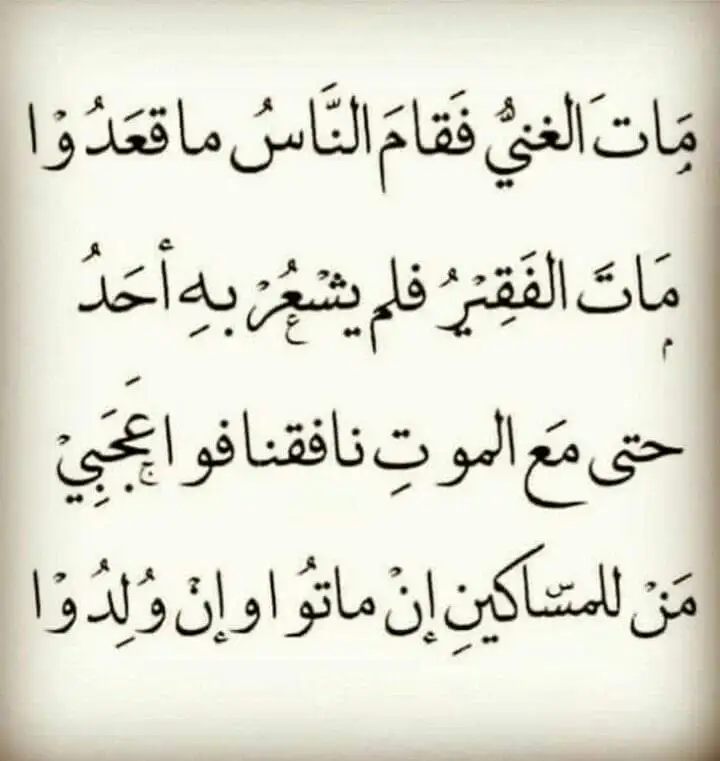 مَاتَ الغنيُّ فَقامَ النَّاسُ ما قعَدُوْا
مَاتَ الفَقِيْرُ فلم يشْعُرْ بهِ أحَدُ
حتى مَع الموتِ نافقنا فوا عَجَبِيْ
مَنْ للمسّاكينِ إنْ ماتوُا وإنْ وُلِدُوْا